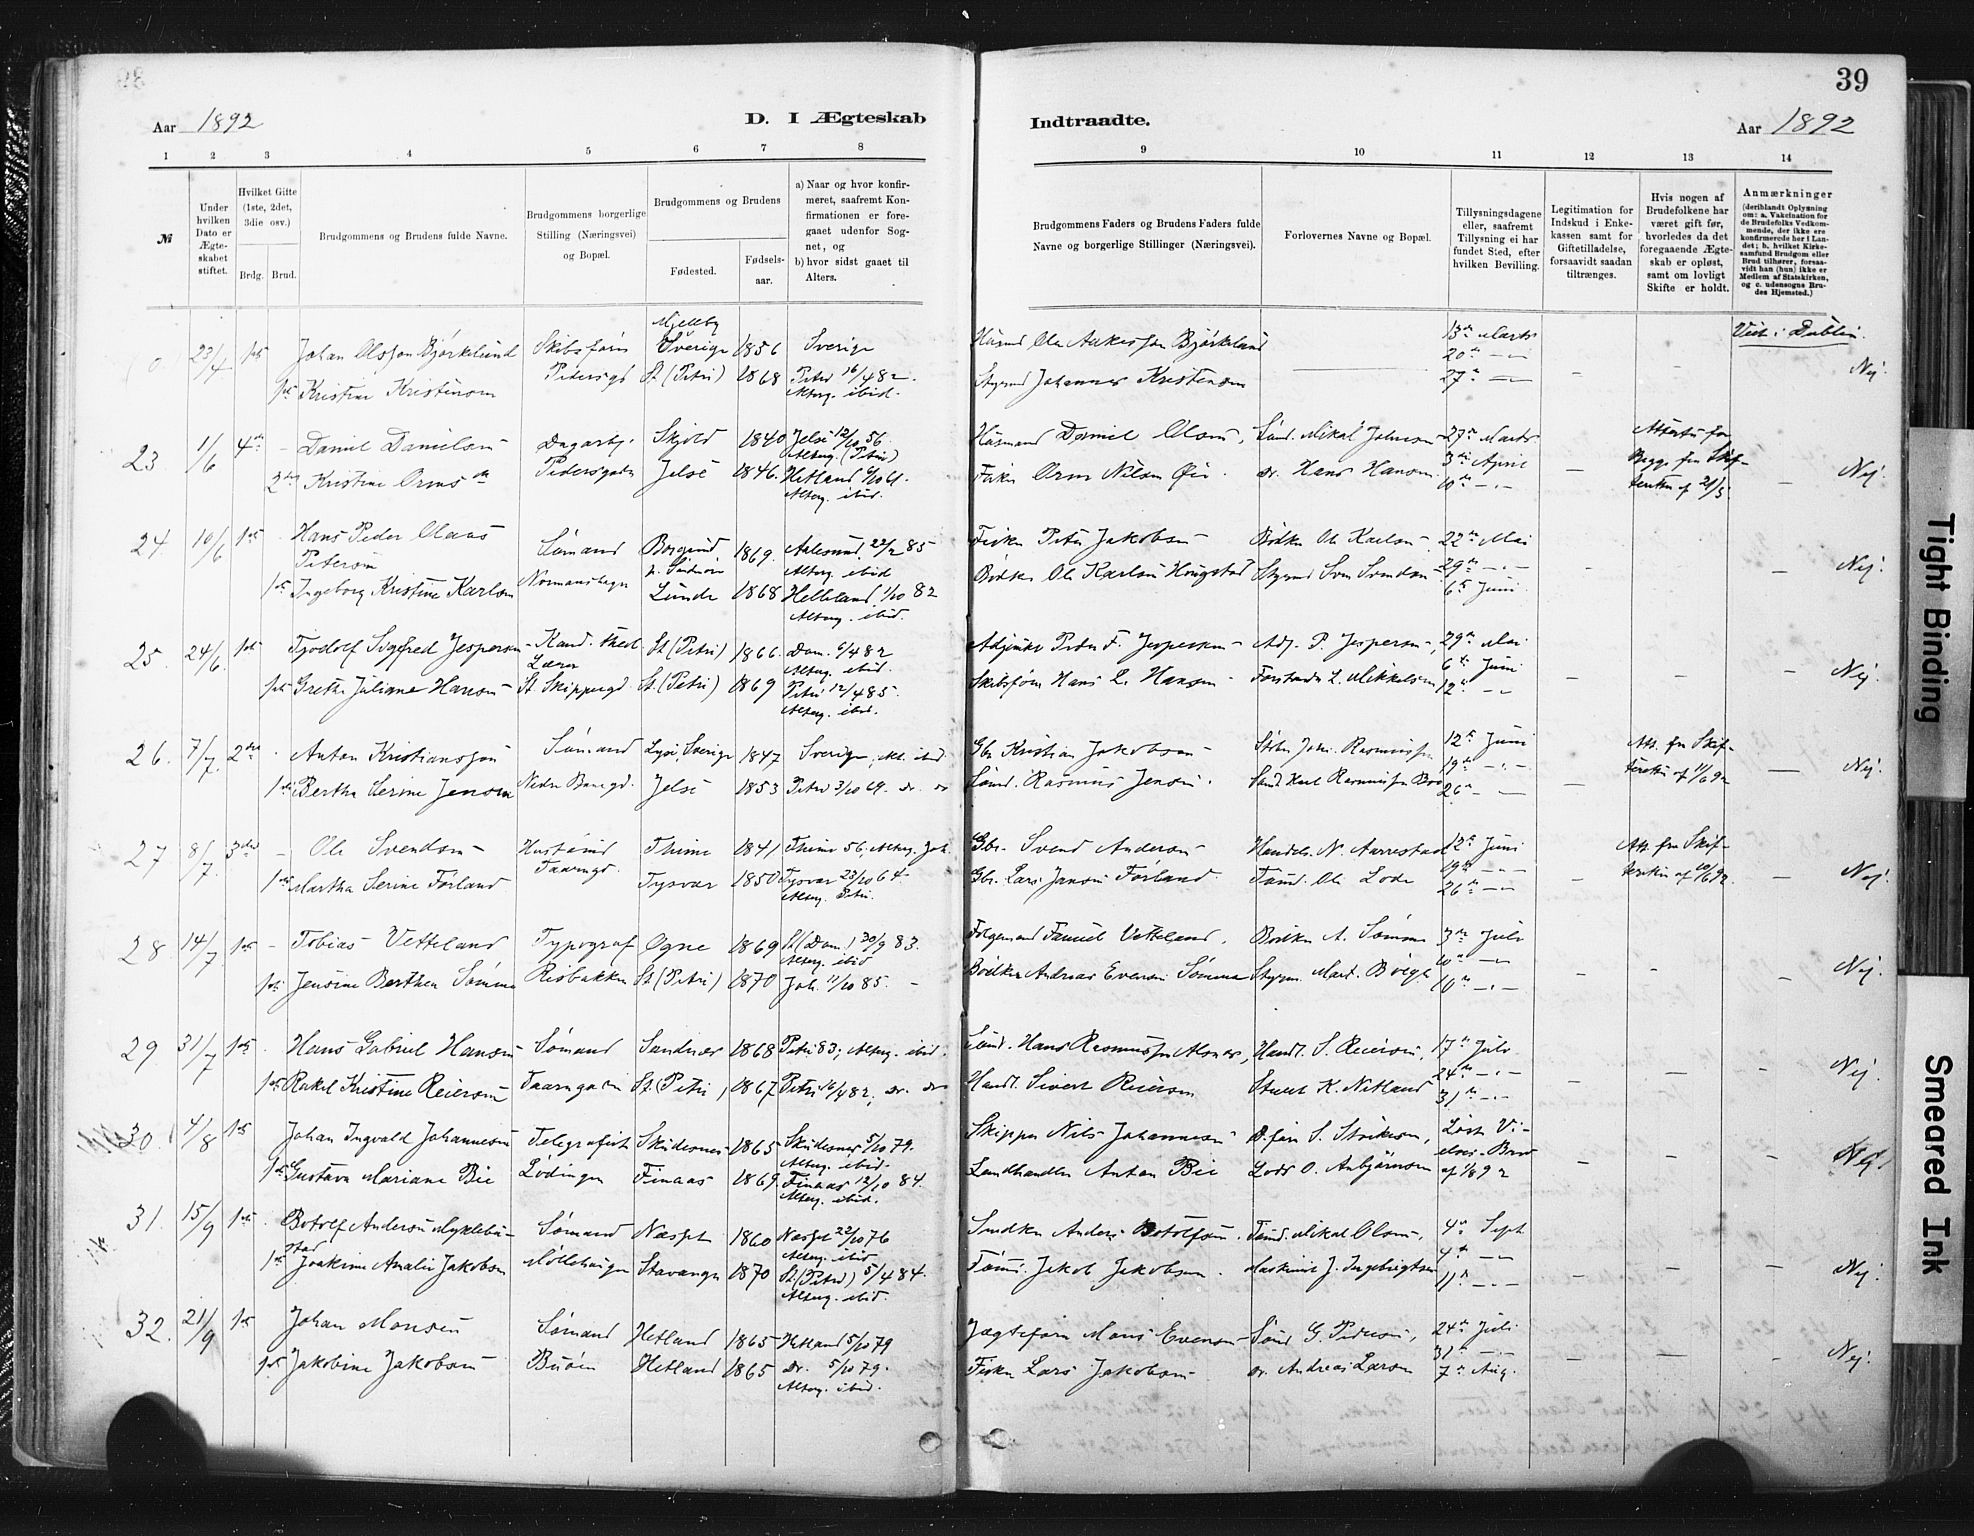 39
Aar 1892
D. I Ægteskab
Indtraadte.
Aar 1892
1 2 3 4 5 6 7 8
9 10 11 12 13 14
№
Under hvilken Dato er Ægteskabet stiftet.
Hvilket Gifte (1ste, 2det, 3die osv.)
Brdg. Brud.
Brudgommens og Brudens fulde Navne.
Brudgommens borgerlige Stilling (Næringsvei) og Bopæl.
Brudgommens og Brudens
Fødested.
Fødsels-aar.
a) Naar og hvor konfirmeret, saafremt Konfirmationen er foregaaet udenfor Sognet, og
b) hvor sidst gaaet til Alters.
Brudgommens Faders og Brudens Faders fulde Navne og borgerlige Stillinger (Næringsvei).
Forlovernes Navne og Bopæl.
Tillysningsdagene eller, saafremt Tillysning ei har fundet Sted, efter hvilken Bevilling.
Legitimation for Indskud i Enkekassen samt for Giftetilladelse, forsaavidt saadan tiltrænges.
Hvis nogen af Brudefolkene har været gift før, hvorledes da det foregaaende Ægteskab er opløst, samt om lovligt Skifte er holdt.
Anmærkninger
(deriblandt Oplysning om: a. Vakcination for de Brudefolks Vedkommende, der ikke ere konfirmerede her i Landet; b. hvilket Kirkesamfund Brudgom eller Brud tilhører, forsaavidt han (hun) ikke er Medlem af Statskirken, og c. udensogns Brudes Hjemsted.)
23/4 1ste Johan Olsson Björkelund Skibsfører Mjellby Sverige 1856 Sverige
Ole Aakesson Björkelund 13de Marts Viet i Dublin.
20de
1ste Kristine Kristensen Pedersgd St (Petri) 1868 Petri 16/4 82. Alterg. ibid.
Styrmd Johannes Kristensen 27de — — Nej.
23. 1/6 4de — Daniel Danielsen Dagarbj. Skjold 1840 Jelse 12/10 56. Alterg. (Petri)
Husmand Daniel Olsen, Sømd. Mikal Johnsen 27de Marts Attester for
2den Kristine Ormsdtr Pedersgaden Jelse 1846. Hetland 6/10 61. Alterg. ibid.
Fisker Orm Nilsen Øie. do. Hans Hansen 3die April 10de — Begge fra Skifteretten af 21/5 — Nej.
24. 10/6 1ste Hans Peder Olaus Petersen Sømand Borgund 1869. Aalesund 22/2 85 Alterg. ibid
Fisker Peter Jakobsen Bødker Ole Karlsen 22de Mai
1ste Ingeborg Kristine Karlsen Lunde 1868 Helleland 1/10 82 Alterg. ibid.
Bødker Ole Karlsen Hougstad Styrmd Sven Svendsen 29de 6te Juni — — — Nej.
25. 24/6. 1ste Tjodolf Sigfred Jespersen Kand. theol. Lærer St (Petri) 1866. Dom. 6/4 82 Alterg. ibid.
Adjunkt Peder F. Jespersen Adj. P. Jespersen, 29de Mai
1ste Grethe Juliane Hansen St. Skippergd St. (Petri) 1869 Petri 12/4 85. Alterg. ibid.
Skibsfører Hans L. Hansen L. Mikkelsen 6te Juni 12te — — — Nej.
26. 7/7. 2den Anton Kristiansson Sømand Lyse, Sverige 1847 Sverige, alt. ibid.
Gbr Kristian Jakobsen Rasmussen 12te Juni Att. fra Skif-
1ste Bertha Serine Jensen Nedre Banegd. Jelse 1853 Petri 3/10 69. do. do
Sømd. Rasmus Jensen. Sømd. Karl Rasmussen 19de 26de — teretten af 11/6 92 — Nej.
27 8/7. 3die — Ole Svendsen Taarngd. Thime 1841 Thime 56, Alterg. Joh.
Gbr. Svend Andersen Handels. N. Aarrestad 12te Juni Att. fra Skif-
1ste Martha Serine Førland Tysvær 1850 Tysvær 23/10 64. Alterg. Petri.
Gbr. Lars Jansen Førland. Tømd. Ole Lode 19de 26de — teretten af 10/6 92. — Nej.
28. 14/7. 1ste — Tobias Vetteland Typograf Ogne 1869 St (Dom.) 30/9 83. Alterg. ibid
Samuel Vetteland. Bødker A. Sømme 3die Juli
1ste Jensine Berthea Sømme Risbakken St (Petri) 1870 Joh. 11/10 85. —
Bødker Andreas Evensen Sømme Styrm. Mart. 10de — — — — Nej.
29 31/7 1ste Hans Gabriel Hansen Sømand Sandnæs 1868 Petri 83; Alterg. ibid.
Sømd. Hans Rasmussen Handl. S. Reiersen, 17de Juli
1ste Rakel Kristine Reiersen Taarngaden St. (Petri) 1867 Petri 16/4 82, do. do
Handl. Sivert Reiersen Stuert K. Nitland 24de 31te — — — Nej.
30. 4/8 1ste Johan Ingvald Johannesen Telegrafist Skudesnes 1865 Skudesnes 5/10 79. Alterg. ibid.
Skipper Nils Johannesen S. Løst Vi-
1ste Gustava Mariane Bie Lødingen Finaas 1869 Finaas 12/10 84. Alterg. ibid.
Landhandler Anton Bie Lods O. Anbjørnsen elses-Brev af 1/8 92 — — — Nej.
31. 15/9 1ste Botolf Andersen Myklebustad Sømand Næsset 1860 Næsset 22/10 76 Alterg. ibid
Smedker Anders Botolfsen. Tømd. Mikal Olsen, 4de Sept
1ste Joakime Amalie Jakobsen Møllehaugen Stavanger 1870 St (Petri) 5/4 84. Alterg. ibid.
Tømd. Jakob Jakobsen. Maskinist J. Ingebrigtsen 4de 11te — — — Nej.
32. 21/9 1ste Johan Monsen Sømand Hetland 1865 Hetland 5/10 79
Jægtefører Mons Evensen Sømd G. Pedersen, 24de Juli
1ste Jakobine Jakobsen Buøen Hetland 1865 do. 5/10 79. Alterg. ibid.
Fisker Lars Jakobsen do. Andreas Larsen 31te 7de Aug. — — — Nej.
Tight Binding
Smeared Ink